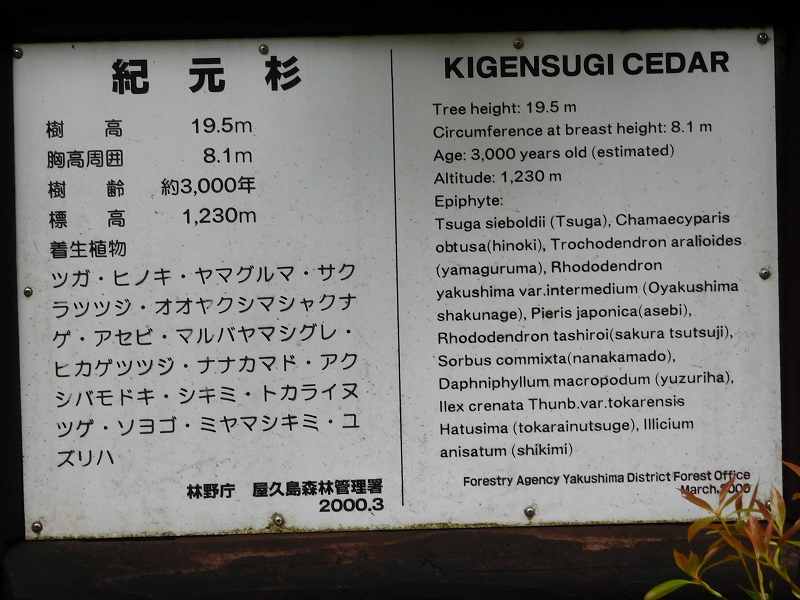 紀元杉
樹高 19.5m
胸高周囲 8.1m
樹齢 約3,000年
標高 1,230m
着生植物
ツガ・ヒノキ・ヤマグルマ・サク
ラツツジ・オオヤクシマシャクナ
ゲ・アセビ・マルバヤマシグレ・
ヒカゲツツジ・ナナカマド・アク
シバモドキ・シキミ・トカライヌ
ツゲ・ソヨゴ・ミヤマシキミ・ユ
ズリハ
林野庁 屋久島森林管理署
2000.3
KIGENSUGI CEDAR
Tree height: 19.5 m
Circumference at breast height: 8.1 m
Age: 3,000 years old (estimated)
Altitude: 1,230 m
Epiphyte:
Tsuga sieboldii (Tsuga), Chamaecyparis
obtusa(hinoki), Trochodendron aralioides
(yamaguruma), Rhododendron
yakushima var.intermedium (Oyakushima
shakunage), Pieris japonica(asebi),
Rhododendron tashiroi(sakura tsutsuji),
Sorbus commixta(nanakamado),
Daphniphyllum macropodum (yuzuriha),
Ilex crenata Thunb.var.tokarensis
Hatusima (tokarainutsuge), Illicium
anisatum (shikimi)
Forestry Agency Yakushima District Forest Office
March.2000